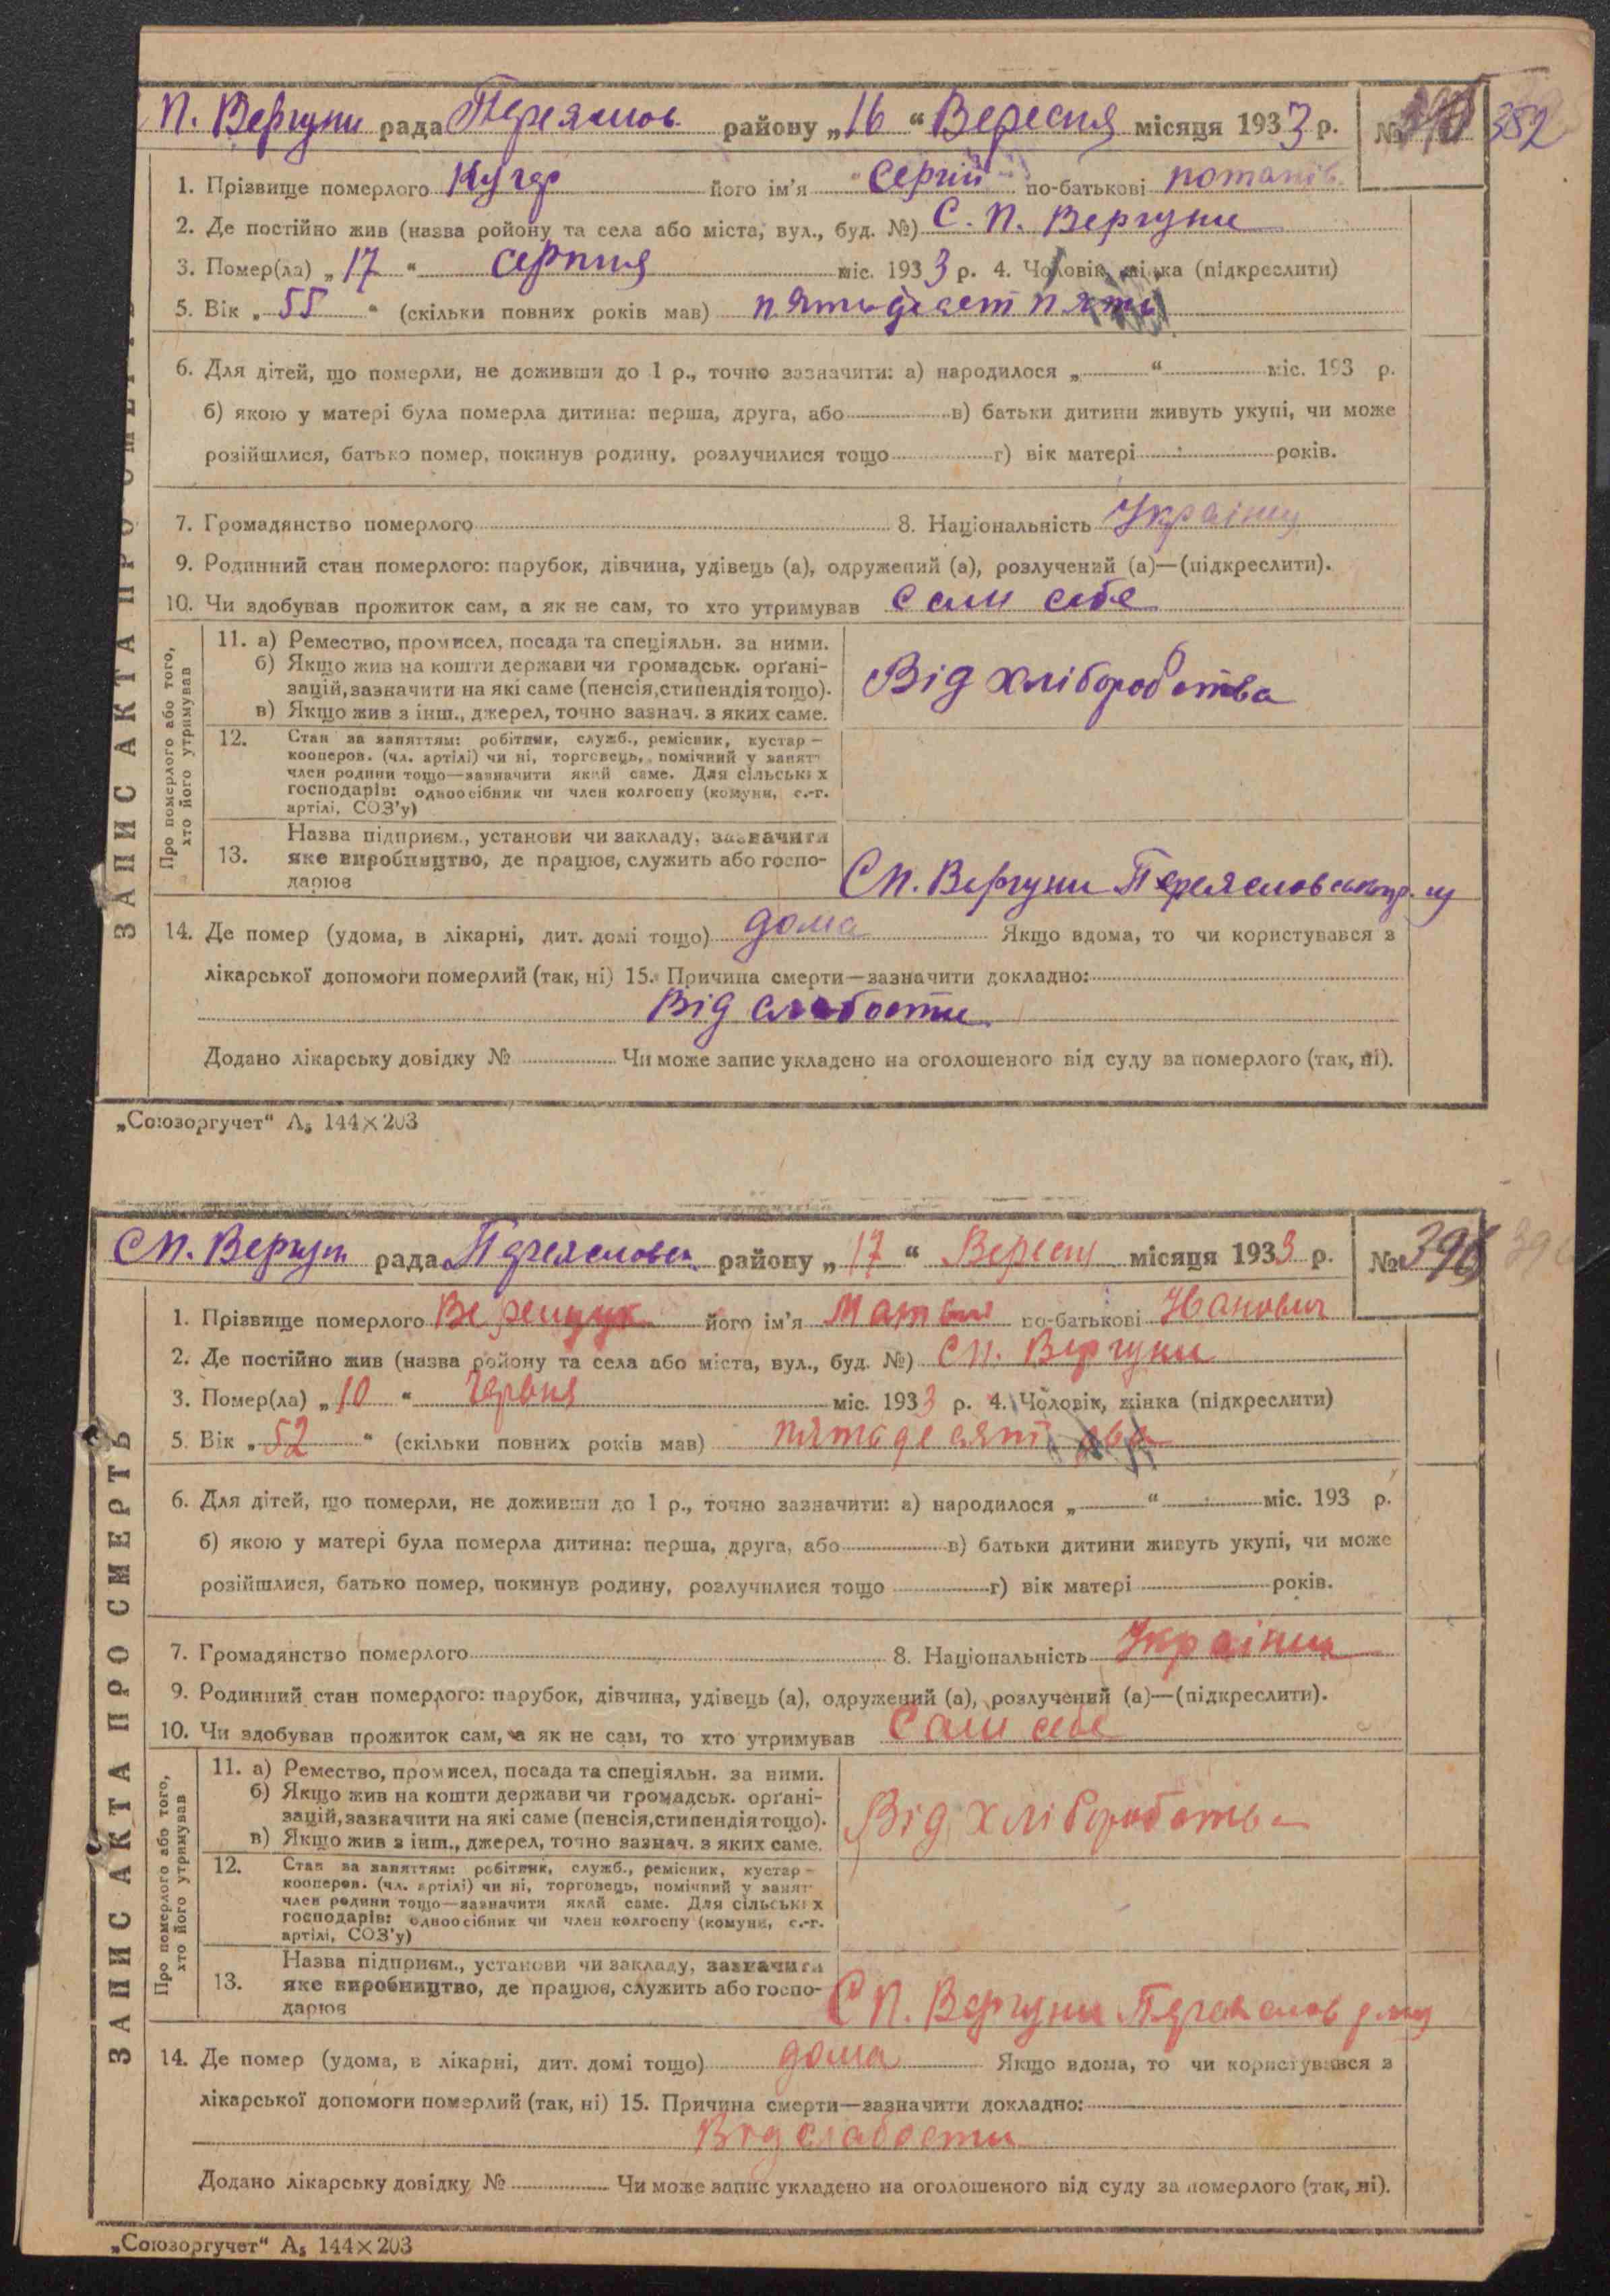 П. Вергуни рада Переяслов району „16“ Вересня місяця 1933 р. № 382
1. Прізвище померлого його ім'я Сергій по-батькові потапів
2. Де постійно жив (назва ройону та села або міста, вул., буд. №) С. П. Вергуни
3. Помер(ла) „17“ серпня міс. 1933 р. 4. Чоловік, жінка (підкреслити)
5. Вік „55“ (скільки повних років мав) пятьдесет пять
6. Для дітей, що померли, не доживши до 1 р., точно зазначити: а) народилося „ “ міс. 193 р.
б) якою у матері була померла дитина: перша, друга, або в) батьки дитини живуть укупі, чи може
розійшлися, батько помер, покинув родину, розлучилися тощо г) вік матері років.
7. Громадянство померлого 8. Національність Українец
9. Родинний стан померлого: парубок, дівчина, удівець (а), одружений (а), розлучений (а)—(підкреслити).
10. Чи здобував прожиток сам, а як не сам, то хто утримував сам себе
ЗАПИС АКТА ПРО
Про померлого або того, хто його утримував
11. а) Ремество, промисел, посада та спеціяльн. за ними.
б) Якщо жив на кошти держави чи громадськ. орґані-
зацій, зазначити на які саме (пенсія, стипендія тощо).
в) Якщо жив з інш., джерел, точно зазнач. з яких саме.
Від хліборобства
12. Стан за заняттям: робітник, служб., ремісник, кустар —
кооперов. (чл. артілі) чи ні, торговець, помічний у занят
член родини тощо—зазначити який саме. Для сільських
господарів: одноосібник чи член колгоспу (комуни, с.-г.
артілі, СОЗ'у)
13. Назва підприєм., установи чи закладу, зазначити
яке виробництво, де працює, служить або госпо-
дарює
СП. Вергуни
14. Де помер (удома, в лікарні, дит. домі тощо) дома Якщо вдома, то чи користувався з
лікарської допомоги померлий (так, ні) 15. Причина смерти—зазначити докладно:
Від слабости
Додано лікарську довідку № Чи може запис укладено на оголошеного від суду за померлого (так, ні).
„Союзоргучет“ А5 144×203
СП. Вергун рада Переяслов району „17“ Вересн місяця 1933 р. № 396
1. Прізвище померлого Верещук його ім'я Матвій по-батькові Іванович
2. Де постійно жив (назва ройону та села або міста, вул., буд. №) СП. Вергуни
3. Помер(ла) „10“ червня міс. 1933 р. 4. Чоловік, жінка (підкреслити)
5. Вік „52“ (скільки повних років мав) пятьдесят два
6. Для дітей, що померли, не доживши до 1 р., точно зазначити: а) народилося „ “ міс. 193 р.
б) якою у матері була померла дитина: перша, друга, або в) батьки дитини живуть укупі, чи може
розійшлися, батько помер, покинув родину, розлучилися тощо г) вік матері років.
7. Громадянство померлого 8. Національність Українец
9. Родинний стан померлого: парубок, дівчина, удівець (а), одружений (а), розлучений (а)—(підкреслити).
10. Чи здобував прожиток сам, а як не сам, то хто утримував Сам себе
ЗАПИС АКТА ПРО СМЕРТЬ
Про померлого або того, хто його утримував
11. а) Ремество, промисел, посада та спеціяльн. за ними.
б) Якщо жив на кошти держави чи громадськ. орґані-
зацій, зазначити на які саме (пенсія, стипендія тощо).
в) Якщо жив з інш., джерел, точно зазнач. з яких саме.
Від хліборобства
12. Стан за заняттям: робітник, служб., ремісник, кустар —
кооперов. (чл. артілі) чи ні, торговець, помічний у занят
член родини тощо—зазначити який саме. Для сільських
господарів: одноосібник чи член колгоспу (комуни, с.-г.
артілі, СОЗ'у)
13. Назва підприєм., установи чи закладу, зазначити
яке виробництво, де працює, служить або госпо-
дарює
СП. Вергуни Переяслов
14. Де помер (удома, в лікарні, дит. домі тощо) дома Якщо вдома, то чи користувався з
лікарської допомоги померлий (так, ні) 15. Причина смерти—зазначити докладно:
Від слабости
Додано лікарську довідку № Чи може запис укладено на оголошеного від суду за померлого (так, ні).
„Союзоргучет“ А5 144×203